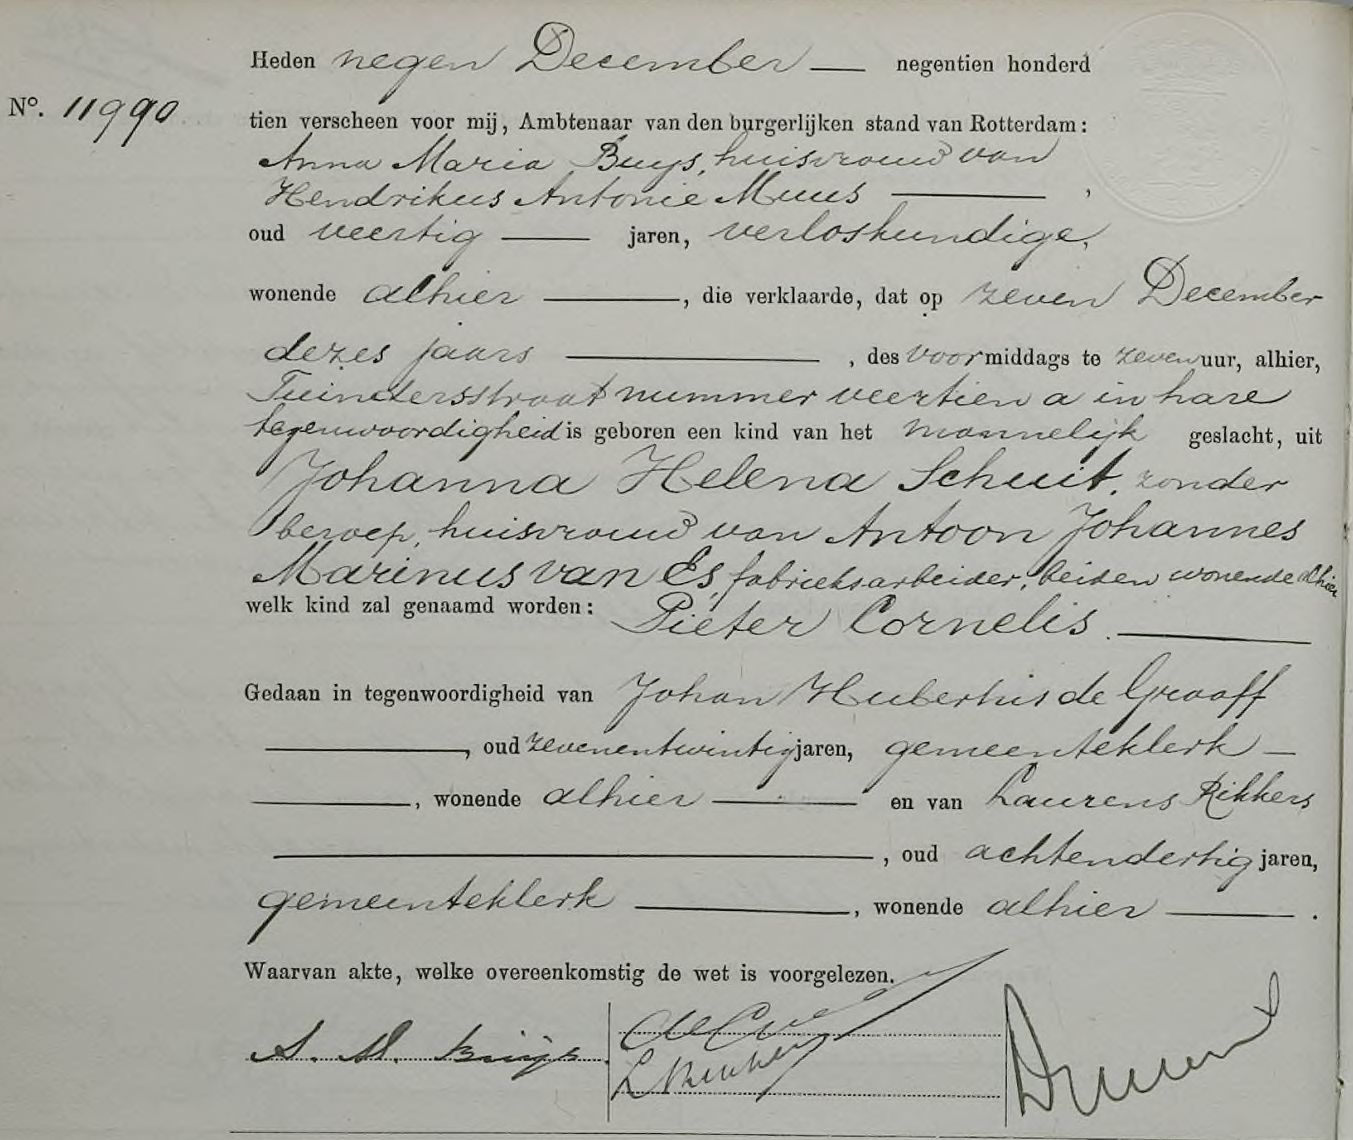 Heden negen December negentien honderd
N°. 11990
tien verscheen voor mij, Ambtenaar van den burgerlijken stand van Rotterdam:
Anna Maria Buys, huisvrouw van
Hendrikus Antonie Muus ,
oud veertig jaren, verloskundige,
wonende alhier , die verklaarde, dat op zeven December
dezes jaars , des voormiddags te zeven uur, alhier,
Tuindersstraat nummer veertien a in hare
tegenwoordigheid is geboren een kind van het mannelijk geslacht, uit
Johanna Helena Schuit, zonder
beroep, huisvrouw van Antoon Johannes
Marinus van Es, fabrieksarbeider, beiden wonende alhier
welk kind zal genaamd worden: Pieter Cornelis.
Gedaan in tegenwoordigheid van Johan Hubertus de Graaff
, oud zevenentwintig jaren, gemeenteklerk
, wonende alhier en van Laurens Rikkers
, oud achtendertig jaren,
gemeenteklerk , wonende alhier .
Waarvan akte, welke overeenkomstig de wet is voorgelezen.
A. M. Buijs
L Rikkers